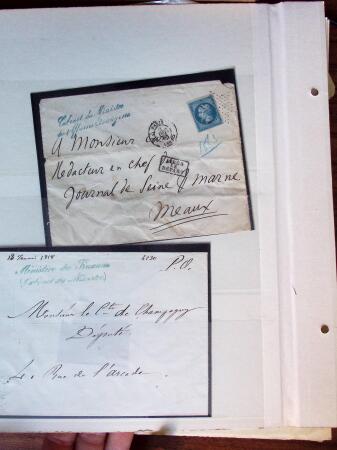 Cabinet du Ministre
des Affaires Etrangères
A Monsieur
Rédacteur en chef
Journal de Seine & Marne
Meaux
18 Janvier 1818
P.P.
Ministère des Finances
(Cabinet du Ministre)
Monsieur le Cte de Champagny
Député
Rue de l'arcade